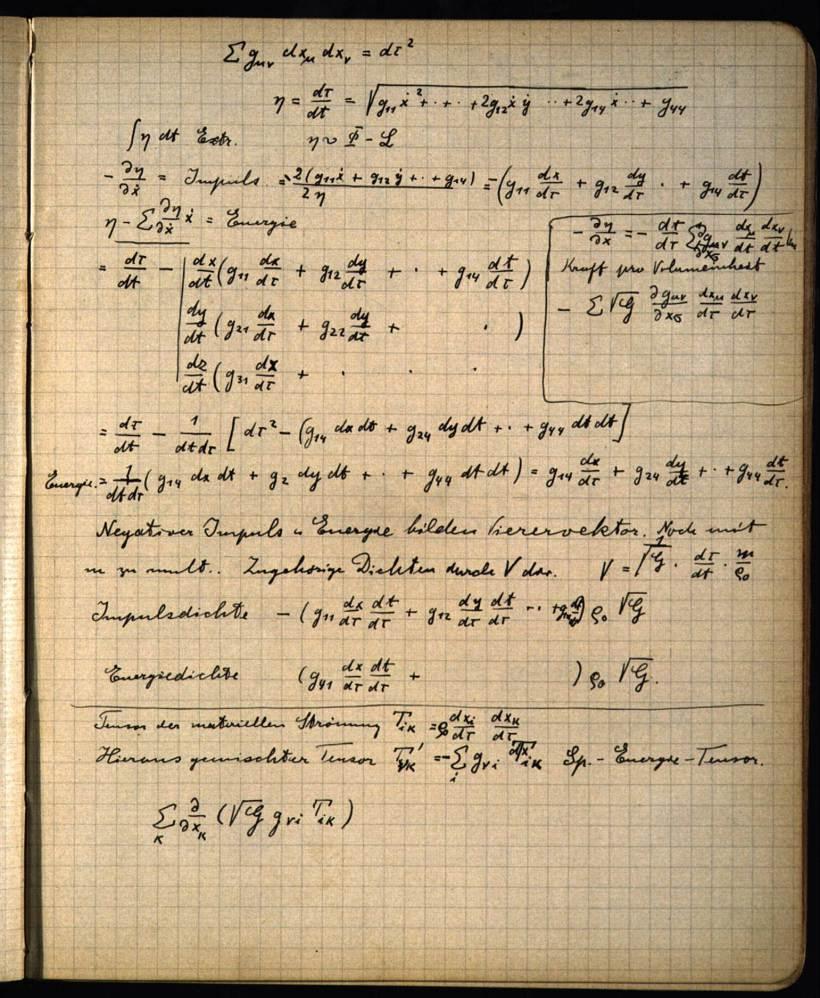 Σ g_μν dx_μ dx_ν = dτ²
η = dτ/dt = √(g₁₁ẋ² + · · + 2g₁₂ẋẏ ·· + 2g₁₄ẋ ·· + g₄₄)
∫η dt Extr. η ∾ Φ - L
- ∂η/∂ẋ = Impuls = - 2(g₁₁ẋ + g₁₂ẏ + · + g₁₄)/2η = -(g₁₁ dx/dτ + g₁₂ dy/dτ · + g₁₄ dt/dτ)
η - Σ ∂η/∂ẋ ẋ = Energie
= dτ/dt - | dx/dt (g₁₁ dx/dτ + g₁₂ dy/dτ + · + g₁₄ dt/dτ)
dy/dt (g₂₁ dx/dτ + g₂₂ dy/dτ + · )
dz/dt (g₃₁ dx/dτ + · · ·
- ∂η/∂x = - dt/dτ Σ ∂g_μν/∂x_σ dx_μ/dt dx_ν/dt
Kraft pro Volumeinheit
- Σ √G ∂g_μν/∂x_σ dx_μ/dτ dx_ν/dτ
= dτ/dt - 1/dtdτ [dτ² - (g₁₄ dx dt + g₂₄ dy dt + · + g₄₄ dt dt]
Energie. = 1/dtdτ (g₁₄ dx dt + g₂ dy dt + · + g₄₄ dt dt) = g₁₄ dx/dτ + g₂₄ dy/dτ + · + g₄₄ dt/dτ.
Negativer Impuls u Energie bilden Vierervektor. Noch mit
m zu mult.. Zugehörige Dichten durch V div. V = 1/√G · dτ/dt · m/ρ₀
Impulsdichte - (g₁₁ dx/dτ dt/dτ + g₁₂ dy/dτ dt/dτ ·· + ) ρ₀ √G
Energiedichte (g₄₁ dx/dτ dt/dτ + ) ρ₀ √G.
Tensor der materiellen Strömung T_iκ = ρ₀ dx_i/dτ dx_κ/dτ
Hieraus gemischter Tensor T'_νκ = -Σ_i g_νi T_iκ Sp. - Energie - Tensor.
Σ_κ ∂/∂x_κ (√G g_νi T_iκ)